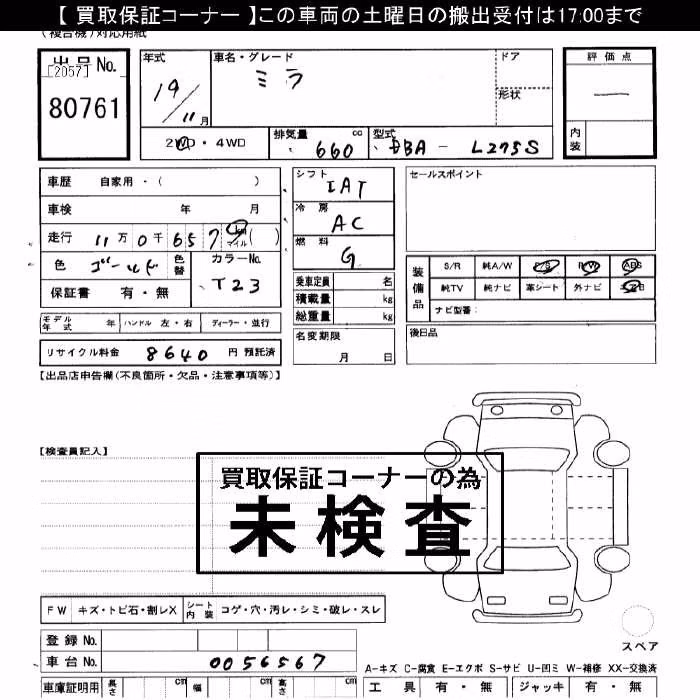 【 買取保証コーナー 】この車両の土曜日の搬出受付は17:00まで
(複合機)対応用紙
出品No.
[2057]
80761
年式
19/11月
車名・グレード
ミラ
ドア
形状
評価点
―
内装
2WD・4WD
排気量 660 cc
型式 DBA - L275S
車歴 自家用・( )
車検 年 月
走行 11万0千657 km マイル ( )
色 ゴールド 色替
カラーNo. T23
保証書 有・無
シフト IAT
冷房 AC
燃料 G
乗車定員 名
積載量 kg
総重量 kg
名変期限
月 日
セールスポイント
装備品
S/R 純A/W P/S P/W ABS
純TV 純ナビ 革シート 外ナビ
ナビ型番:
後日品
モデル年式 年
ハンドル 左・右
ディーラー・並行
リサイクル料金 8640 円 預託済
【出品店申告欄(不良箇所・欠品・注意事項等)】
【検査員記入】
買取保証コーナーの為
未検査
FW キズ・トビ石・割レX
シート内装 コゲ・穴・汚レ・シミ・破レ・スレ
登録No.
車台No. 0056567
車庫証明用 長さ cm 幅 cm 高さ cm
スペア
A-キズ C-腐食 E-エクボ S-サビ U-凹ミ W-補修 XX-交換済
工具 有・無 ジャッキ 有・無